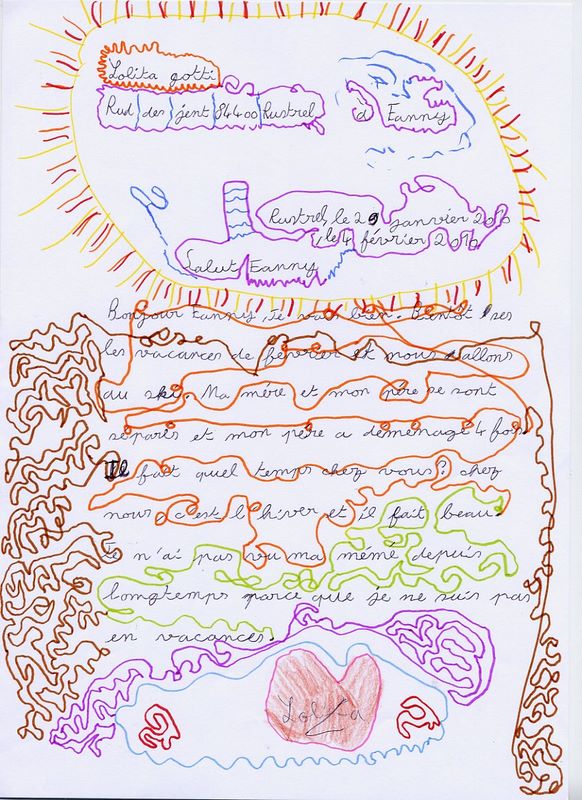 Lolita gotti
Rud des jent 84400 Rustrel
à Fanny
Rustrel, le 29 janvier 2010
, le 4 février 2010
Salut Fanny
Bonjour Fanny, Je vais bien. Bientôt ses
les vacances de février et nous allons
au ski. Ma mère et mon père se sont
séparés et mon père a déménagé 4 fois.
Il fait quel temps chez vous? chez
nous c'est l'hiver et il fait beau.
Je n'ai pas vu ma mémé depuis
longtemps parce que je ne suis pas
en vacances.
Lolita